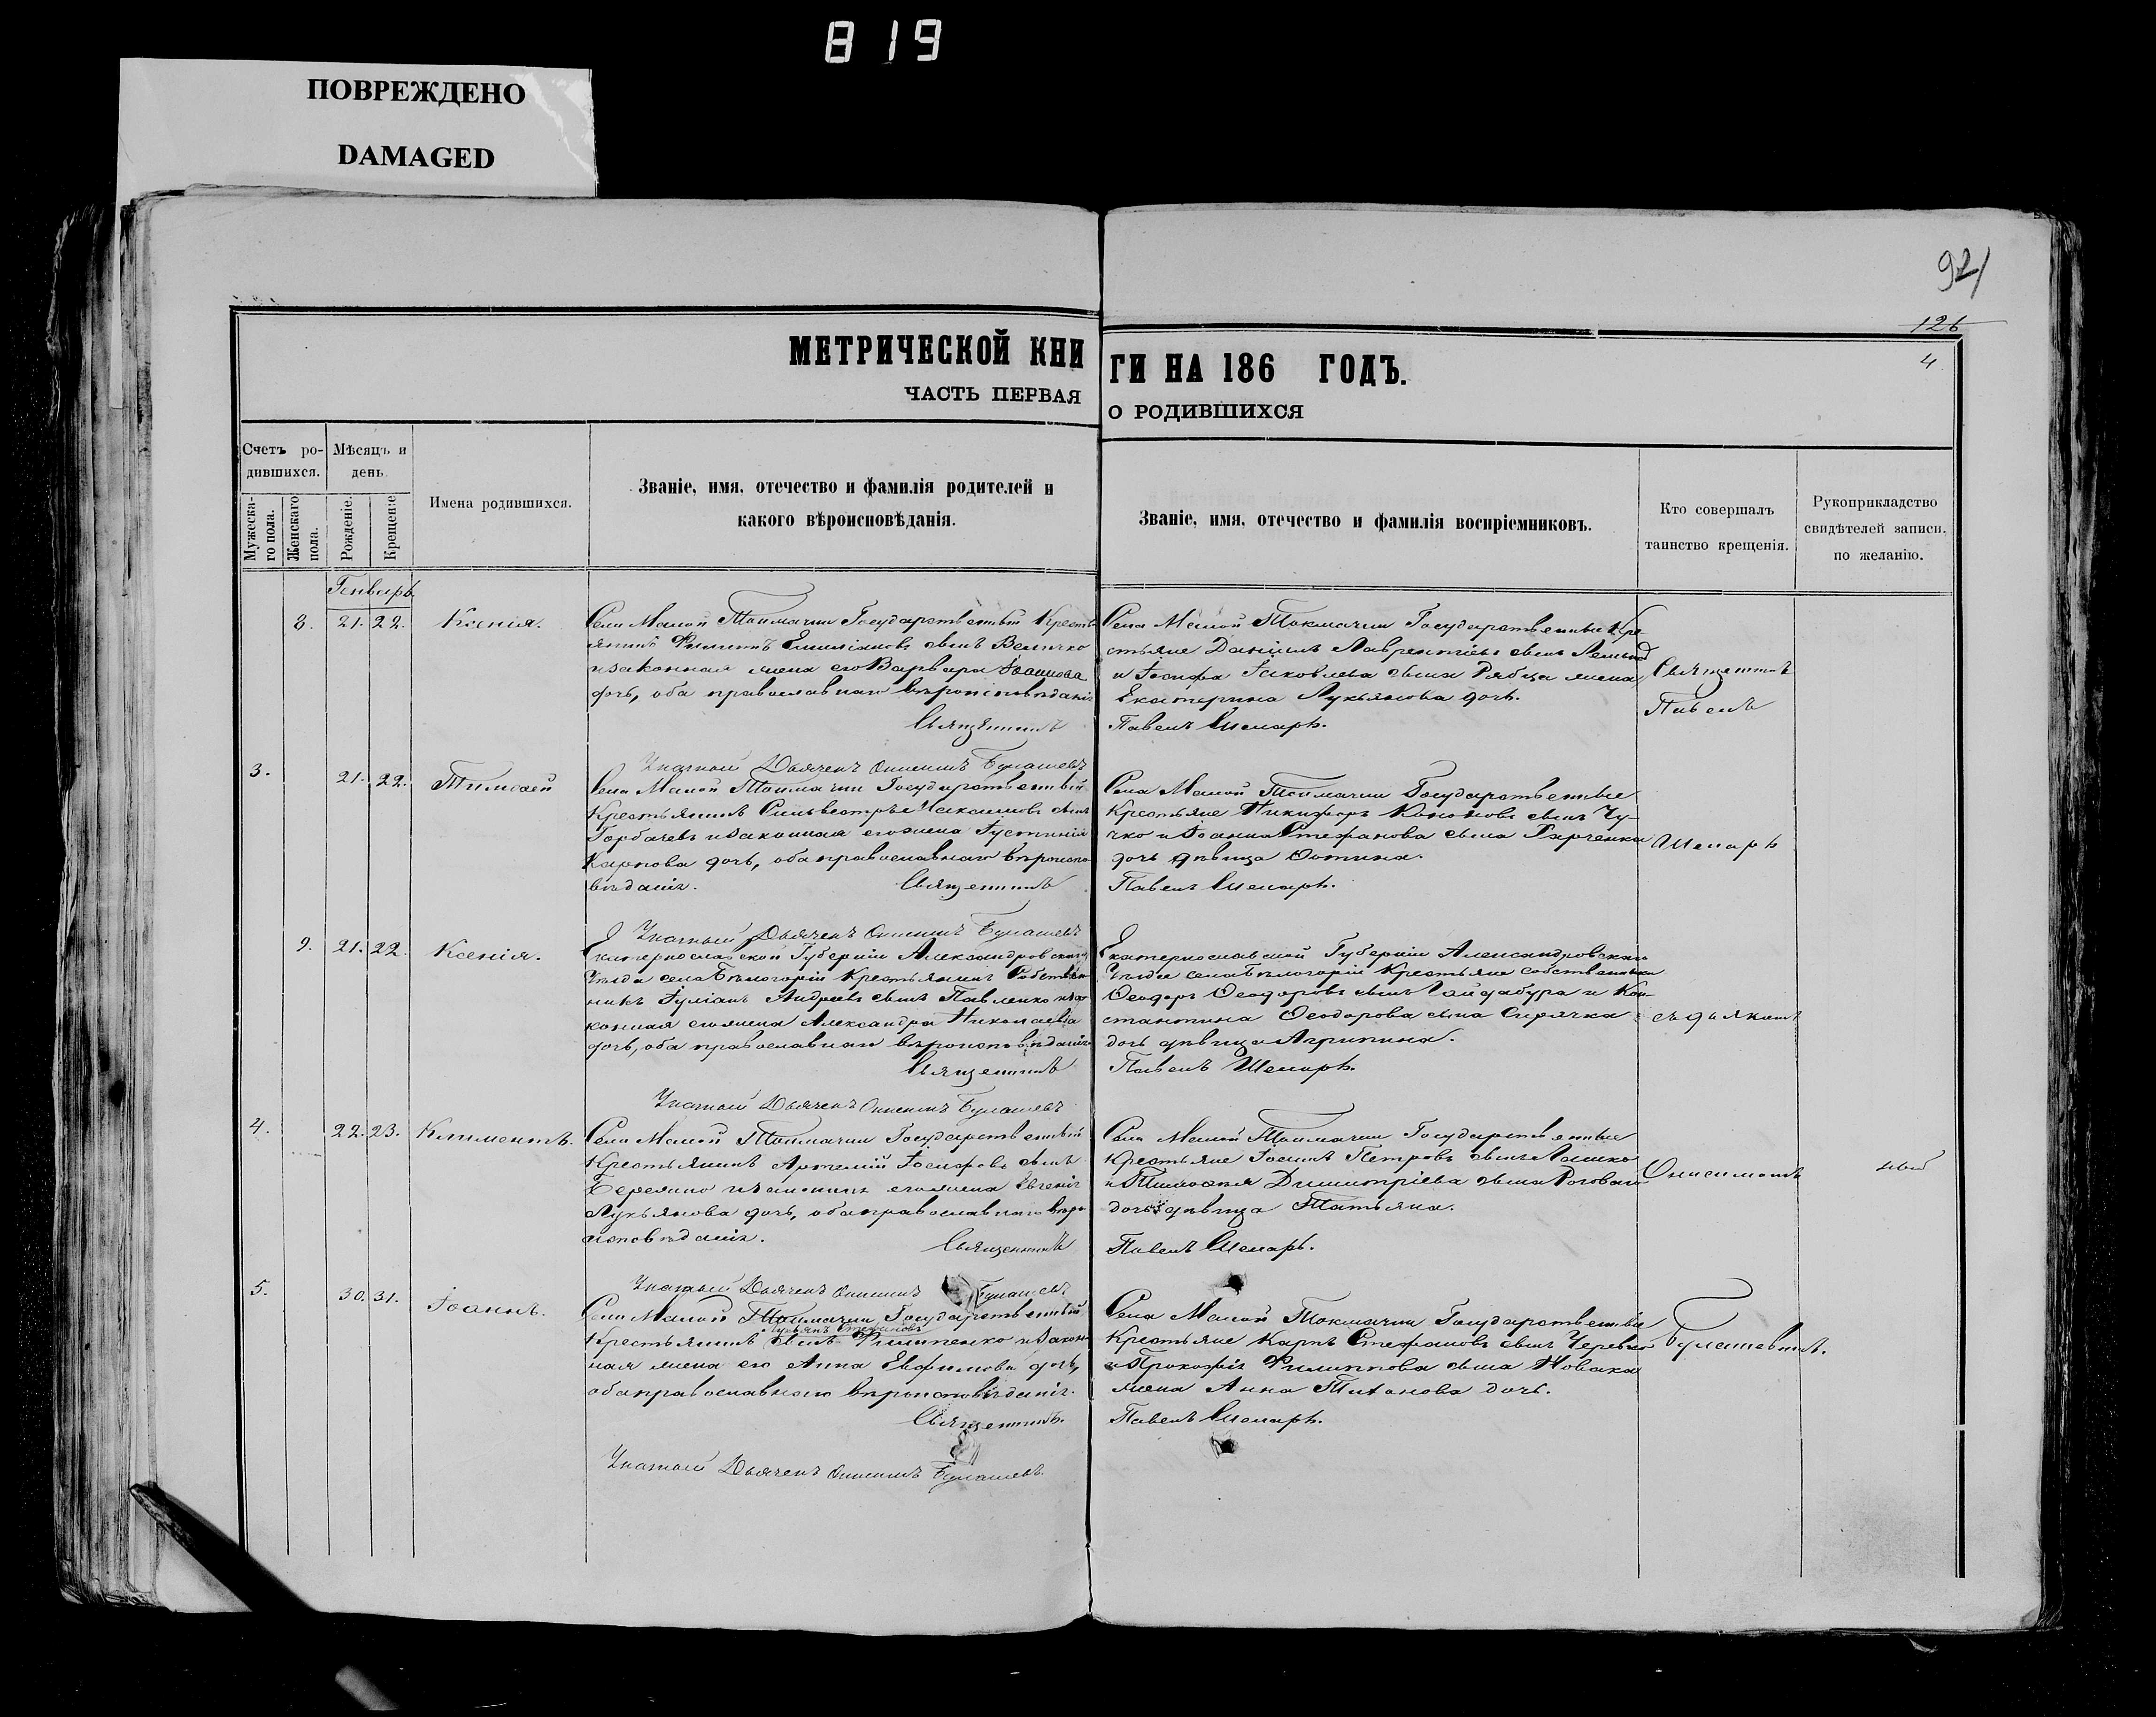 819
ПОВРЕЖДЕНО
DAMAGED
921
126
4
МЕТРИЧЕСКОЙ КНИ
ГИ НА 186 ГОДЪ.
ЧАСТЬ ПЕРВАЯ
О РОДИВШИХСЯ
Счетъ ро-
дившихся.
Мужеска-
го пола.
Женскаго
пола.
Мѣсяцъ и
день.
Рожденіе.
Крещеніе
Имена родившихся.
Званіе, имя, отечество и фамилія родителей и
какого вѣроисповѣданія.
Званіе, имя, отечество и фамилія воспріемниковъ.
Кто совершалъ
таинство крещенія.
Рукоприкладство
свидѣтелей записи.
по желанію.
Генварь
8. 21. 22. Ксенія.
Села Малой Токмачки Государственный Кресть
янинъ Филиппъ Емиліановъ сынъ Величко
и законная жена его Варвара Іоаннова
дочь, оба православнаго вѣроисповѣданія
Священникъ
Села Малой Токмачки Государственные Кре
стьяне Даніилъ Лаврентіевъ сынъ
и Іосифа Іаковлева сына Рябца жена
Екатерина Лукьянова дочь.
Павелъ Шемарь.
Указный Дьячекъ Онисимъ Булашевъ
3. 21. 22. Тимоѳей
Села Малой Токмачки Государственный
Крестьянинъ Сильвестръ Максимовъ сынъ
Горбачевъ и законная его жена Іустинія
Карпова дочь, оба православнаго вѣроиспо
вѣданія. Священникъ
Села Малой Токмачки Государственные
Крестьяне Никифоръ Кононовъ сынъ Чу-
чко и Іоанна Стефанова сына Харченка
дочь дѣвица Фотина.
Павелъ Шемарь.
Указный Дьячекъ Онисимъ Булашевъ
9. 21. 22. Ксенія.
Екатеринославской Губерніи Александровскаго
Уѣзда села Бѣлогорія Крестьянинъ Собствен
никъ Іуліанъ Андреевъ сынъ Павленко и за
конная его жена Александра Николаевна
дочь, оба православнаго вѣроисповѣданія
Священникъ
Екатеринославской Губерніи Александровскаго
Уѣзда села Бѣлогорія Крестьяне собственники
Ѳеодоръ Ѳеодоровъ сынъ Гайдабура и Кон-
стантина Ѳеодорова сына Сирячка
дочь дѣвица Агрипина.
Павелъ Шемарь.
Указный Дьячекъ Онисимъ Булашевъ
4. 22. 23. Климентъ.
Села Малой Токмачки Государственный
Крестьянинъ Артемій Іосифовъ сынъ
и законная его жена Евгенія
Лукьянова дочь, оба православнаго вѣро
исповѣданія. Священникъ
Села Малой Токмачки Государственные
Крестьяне Іоаннъ Петровъ сынъ Лашко
и Тимоѳея Димитріева сына Роговаго
дочь дѣвица Татьяна.
Павелъ Шемарь.
Указный Дьячекъ Онисимъ Булашевъ
5. 30. 31. Іоаннъ.
Села Малой Токмачки Государственный
Лукьянъ Стефановъ
Крестьянинъ сынъ Филипенко и закон-
ная жена его Анна Евфимова дочь,
оба православнаго вѣроисповѣданія.
Священникъ.
Села Малой Токмачки Государственные
Крестьяне Карпъ Стефановъ сынъ Черевко
и Прокофія Филиппова сына Новака
жена Анна Титонова дочь.
Павелъ Шемарь.
Указный Дьячекъ Онисимъ Булашевъ.
Священникъ
Павелъ
Шемарь
съ дьячкомъ
Онисимомъ
Булашевымъ.